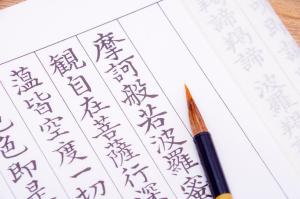 摩訶般若波羅蜜
観自在菩薩行深
蘊皆空度一切
色色即是